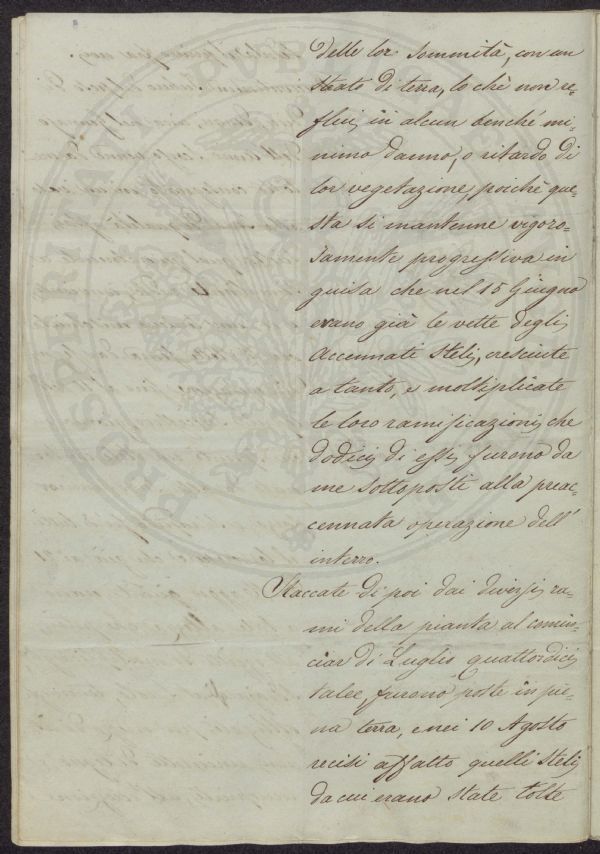 delle lor sommità, con un
strato di terra, lo chè non re-
fluij in alcun benché mi-
nimo danno, o ritardo di
lor vegetazione, poiché que-
sta si mantenne vigoro-
samente progressiva in
guisa che nel 15 Giugno
erano già le vette deglij
accennati stelij, cresciute
a tanto, e moltiplicate
le loro ramificazionij che
dodicij di essij furono da
me sottoposti alla preac-
cennata operazione dell'
interro.
Staccate di poi dai diversij ra-
mi della pianta al comin-
ciar di Luglio quattordicij
talee, furono poste in pie-
na terra, e nei 10 Agosto
recisi affatto quelli stelij
da cui erano state tolte